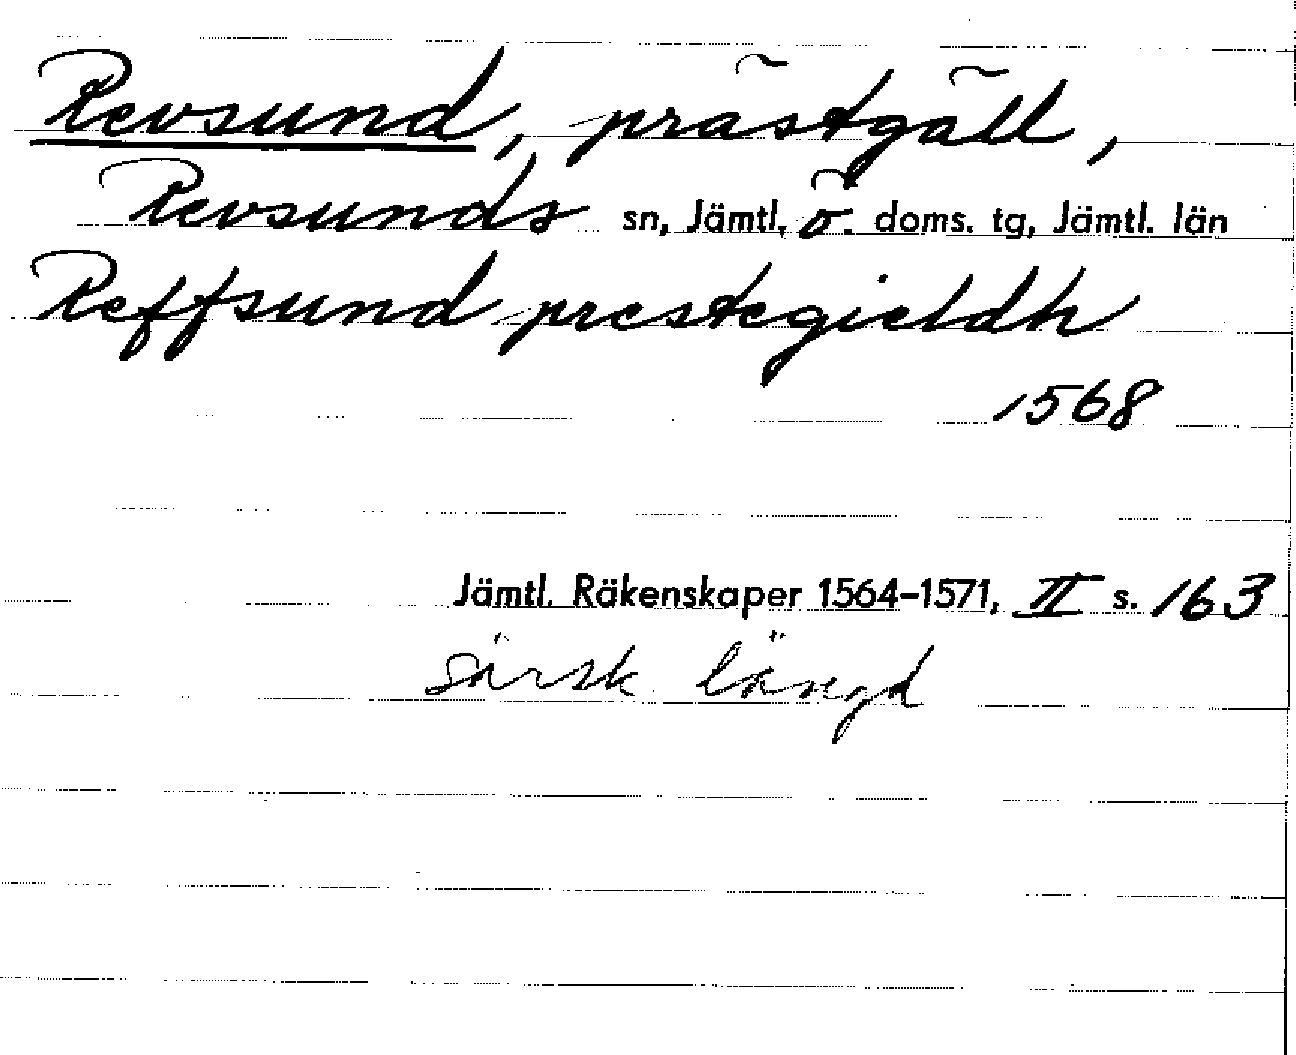 Revsund, prästgäll,
Revsunds sn, Jämtl. ö. doms. tg, Jämtl. län
Reffsund prestegieldh
1568
Jämtl. Räkenskaper 1564–1571, II s. 163
särsk. längd